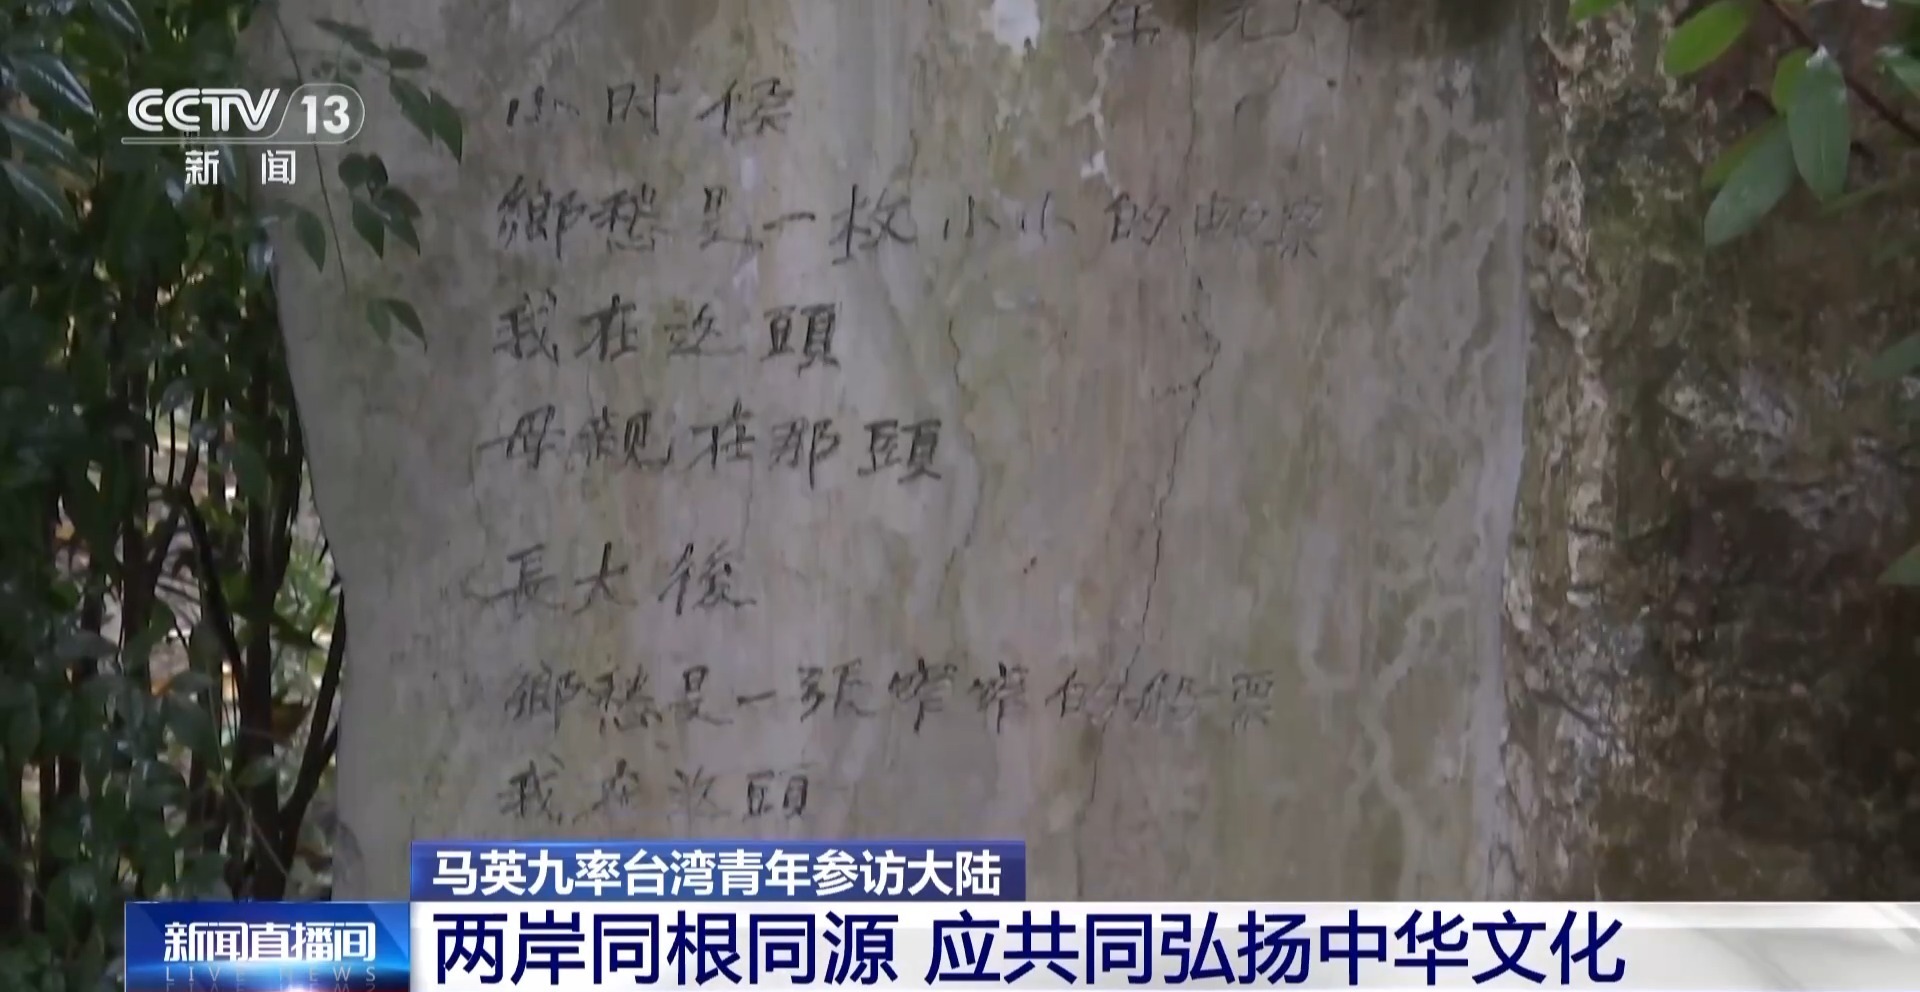 CCTV 13
新闻
小时候
鄉愁是一枚小小的邮票
我在这頭
母親在那頭
長大後
鄉愁是一張窄窄的船票
我在这頭
马英九率台湾青年参访大陆
新闻直播间
LIVE NEWS
两岸同根同源 应共同弘扬中华文化